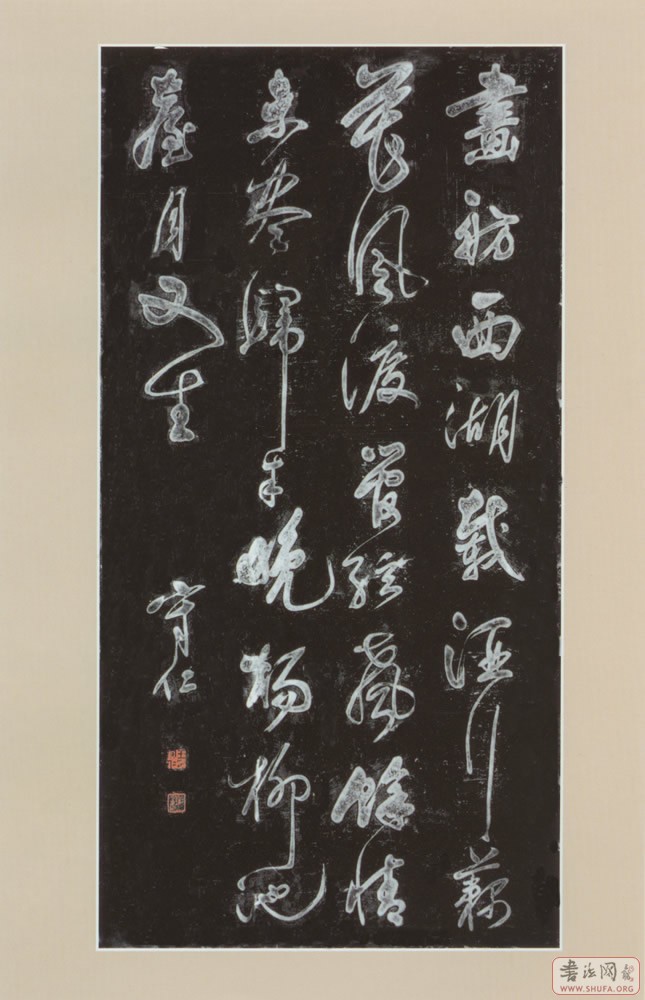 畫舫西湖載酒行藕
花風渡管絃聲餘情
未盡歸來晚楊柳池
臺月又生
守仁
书法网
WWW.SHUFA.ORG